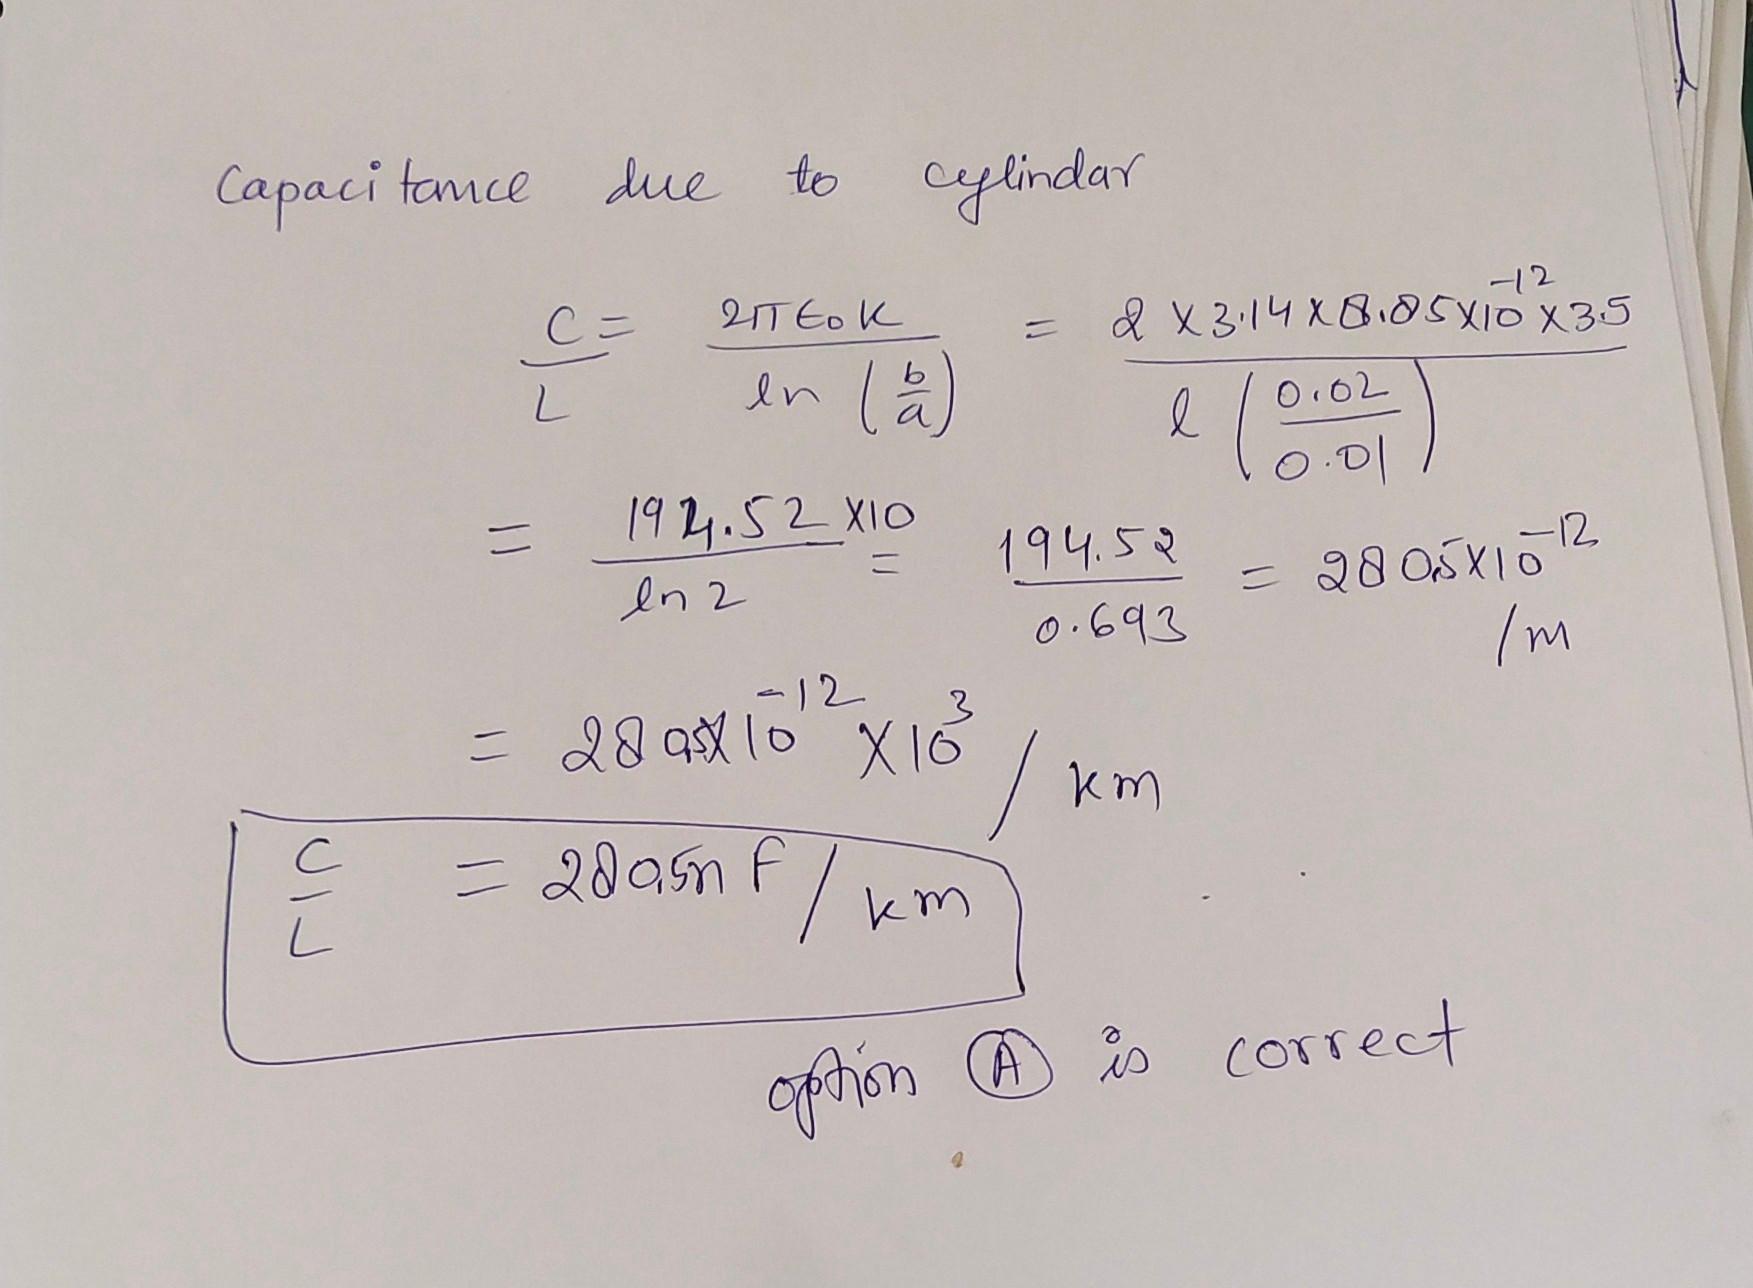 Capacitance due to cylindar
C/L = 2π ϵ0 K / ln (b/a) = 2 × 3.14 × 8.85×10^-12 × 3.5 / l (0.02/0.01)
= 194.52 ×10 / ln 2 = 194.52 / 0.693 = 280.5×10^-12 /m
= 280.5×10^-12 ×10^3 / km
C/L = 280.5n F / km
option (A) is correct